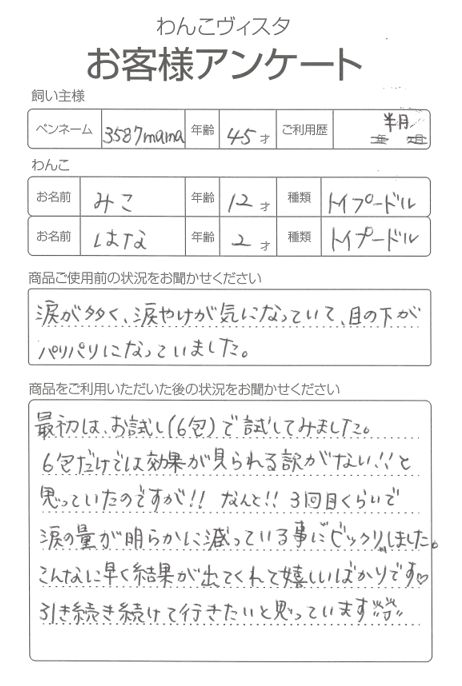 わんこヴィスタ
お客様アンケート
飼い主様
ペンネーム 3587mama 年齢 45才 ご利用歴 半月 年 月
わんこ
お名前 みこ 年齢 12才 種類 トイプードル
お名前 はな 年齢 2才 種類 トイプードル
商品ご使用前の状況をお聞かせください
涙が多く、涙やけが気になっていて、目の下が
パリパリになっていました。
商品をご利用いただいた後の状況をお聞かせください
最初は、お試し(6包)で試してみました。
6包だけでは効果が見られる訳がない!!と
思っていたのですが!! なんと!! 3回目くらいで
涙の量が明らかに減っている事にビックリしました。
こんなに早く結果が出てくれて嬉しいばかりです♡
引き続き続けて行きたいと思っています